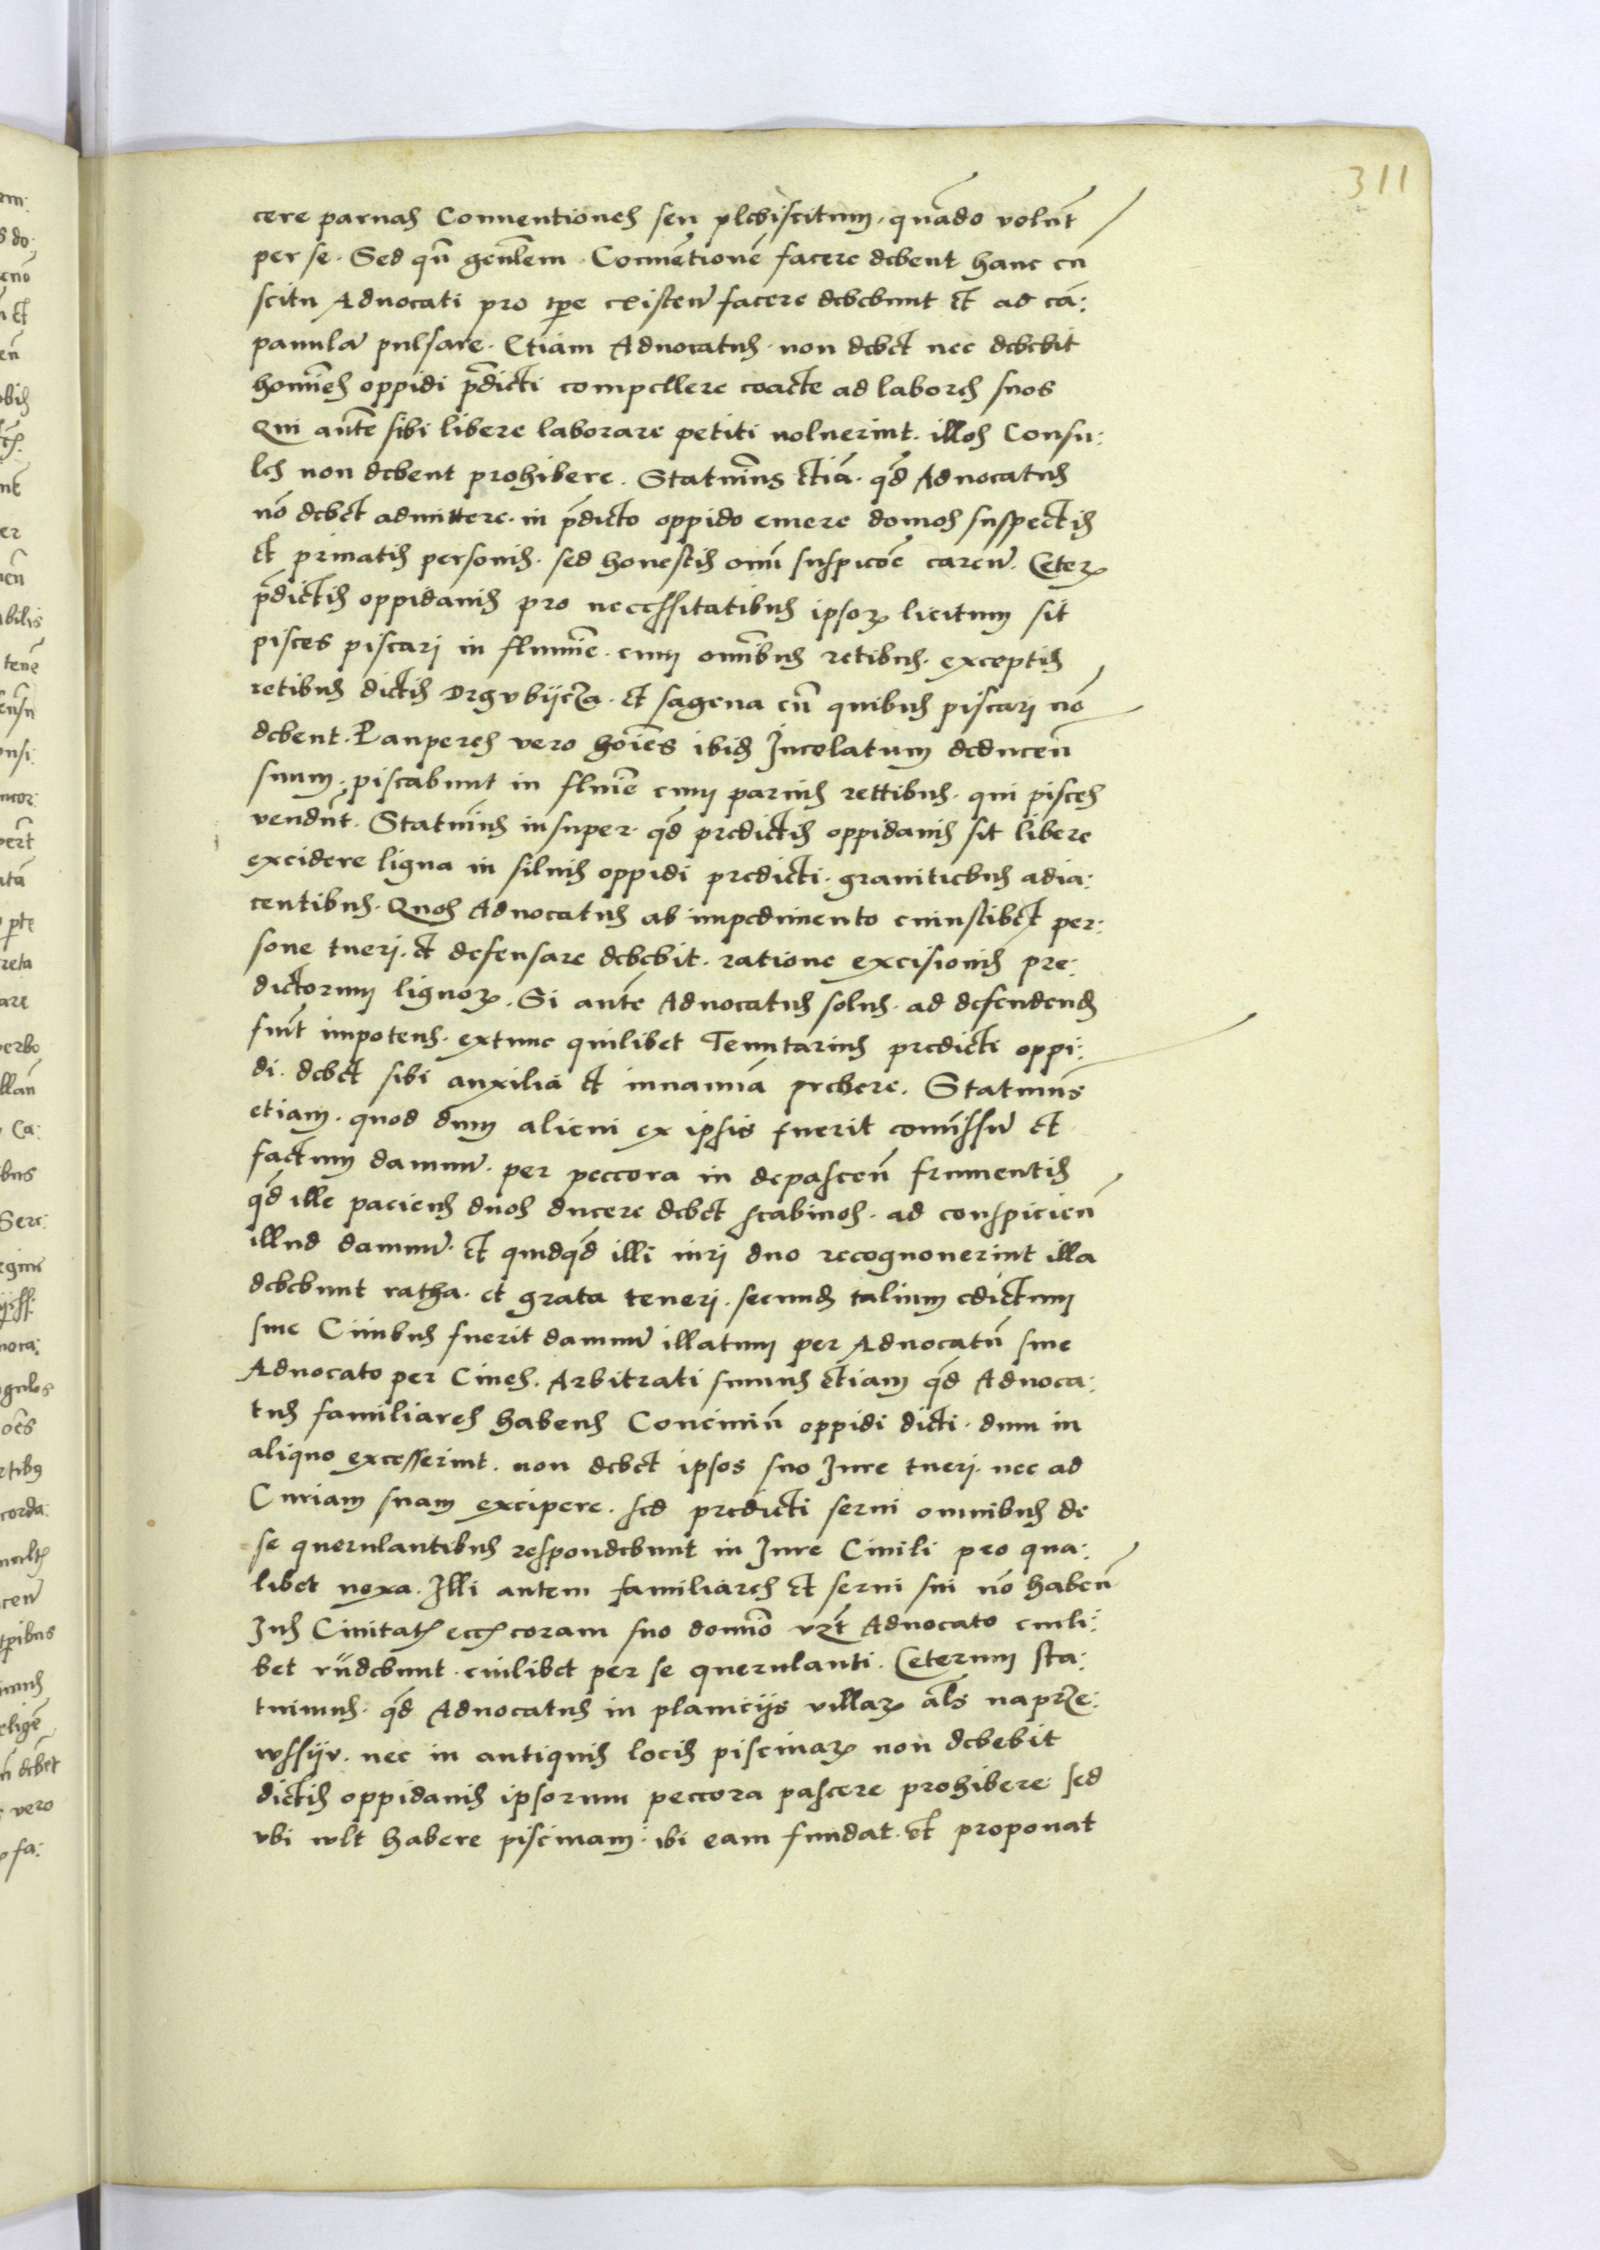 311
cere paruas Conuentiones seu plebiscitum, quãdo volũt
per se. Sed qñ genlem. Conuẽtionẽ facere debent hanc cũ
scitu Aduocati pro tpe existeñ facere debebunt et ad cã:
panulã pulsare. Etiam Aduocatus. non debet nec debebit
homĩes oppidi p̃dicti compellere coacte ad labores suos
Qui aũte sibi libere laborare petiti uoluerint. illos Consu:
les non debent prohibere. Statuĩmus etiã. qd̃ Aduocatus
nõ debet admittere. in p̃dicto oppido emere domos suspectis
et priuatis personis. sed honestis omĩ suspicõe careñ. Ceterꝝ
p̃dictis oppidanis pro necessitatibus ipsoꝝ licitum sit
pisces piscari in flumĩe. cum omĩbus retibus. exceptis
retibus dictis Drgvbijcza. et sagena cũ quibus piscari nõ
debent. Pauperes vero hoĩes ibid̃ Incolatum deduceñ
suum. piscabunt in fluĩe cum paruis rettibus. qui pisces
vendũt. Statuĩmus insuper. qd̃ predictis oppidanis sit libere
excidere ligna in siluis oppidi predicti. granitiebus adia:
centibus. Quos Aduocatus ab impedimento cuiuslibet per:
sone tueri. et defensare debebit. ratione excisionis pre:
dictorum lignoꝝ. Si aũte Aduocatus solus. ad defendend̃
fuĩt impotens. extunc quilibet Tenutarius predicti oppi:
di. debet sibi auxiliã et iuuamã prebere. Statuimus
etiam. quod dum alicui ex ipsis fuerit comĩssũ et
factum damnũ. per peccora in depasceñ frumentis
qd̃ ille paciens duos ducere debet scabinos. ad conspicieñ
illud damnũ. et quidqd̃ illi uiri duo recognouerint illa
debebunt ratha. et grata teneri. secund̃ talium edictum
siue Ciuibus fuerit damnũ illatum per Aduocatũ siue
Aduocato per Ciues. Arbitrati sumus etiam qd̃ Aduoca:
tus familiares habens Conciuiũ oppidi dicti. dum in
aliquo excesserint. non debet ipsos suo Iure tueri. nec ad
Curiam suam excipere. sed predicti serui omnibus de
se querulantibus respondebunt in Iure Ciuili pro qua:
libet noxa. Illi autem familiares et serui sui nõ habeñ
Ius Ciuitatis coram suo domĩo vꝫt Aduocato cuili:
bet rñdebunt. cuilibet per se querulanti. Ceterum sta:
tuimus. qd̃ Aduocatus in planicijs villaꝝ als naprze:
wssijv. nec in antiquis locis piscinaꝝ non debebit
dictis oppidanis ipsorum peccora pascere prohibere sed
vbi wlt habere piscinam. ibi eam fundat. et proponat